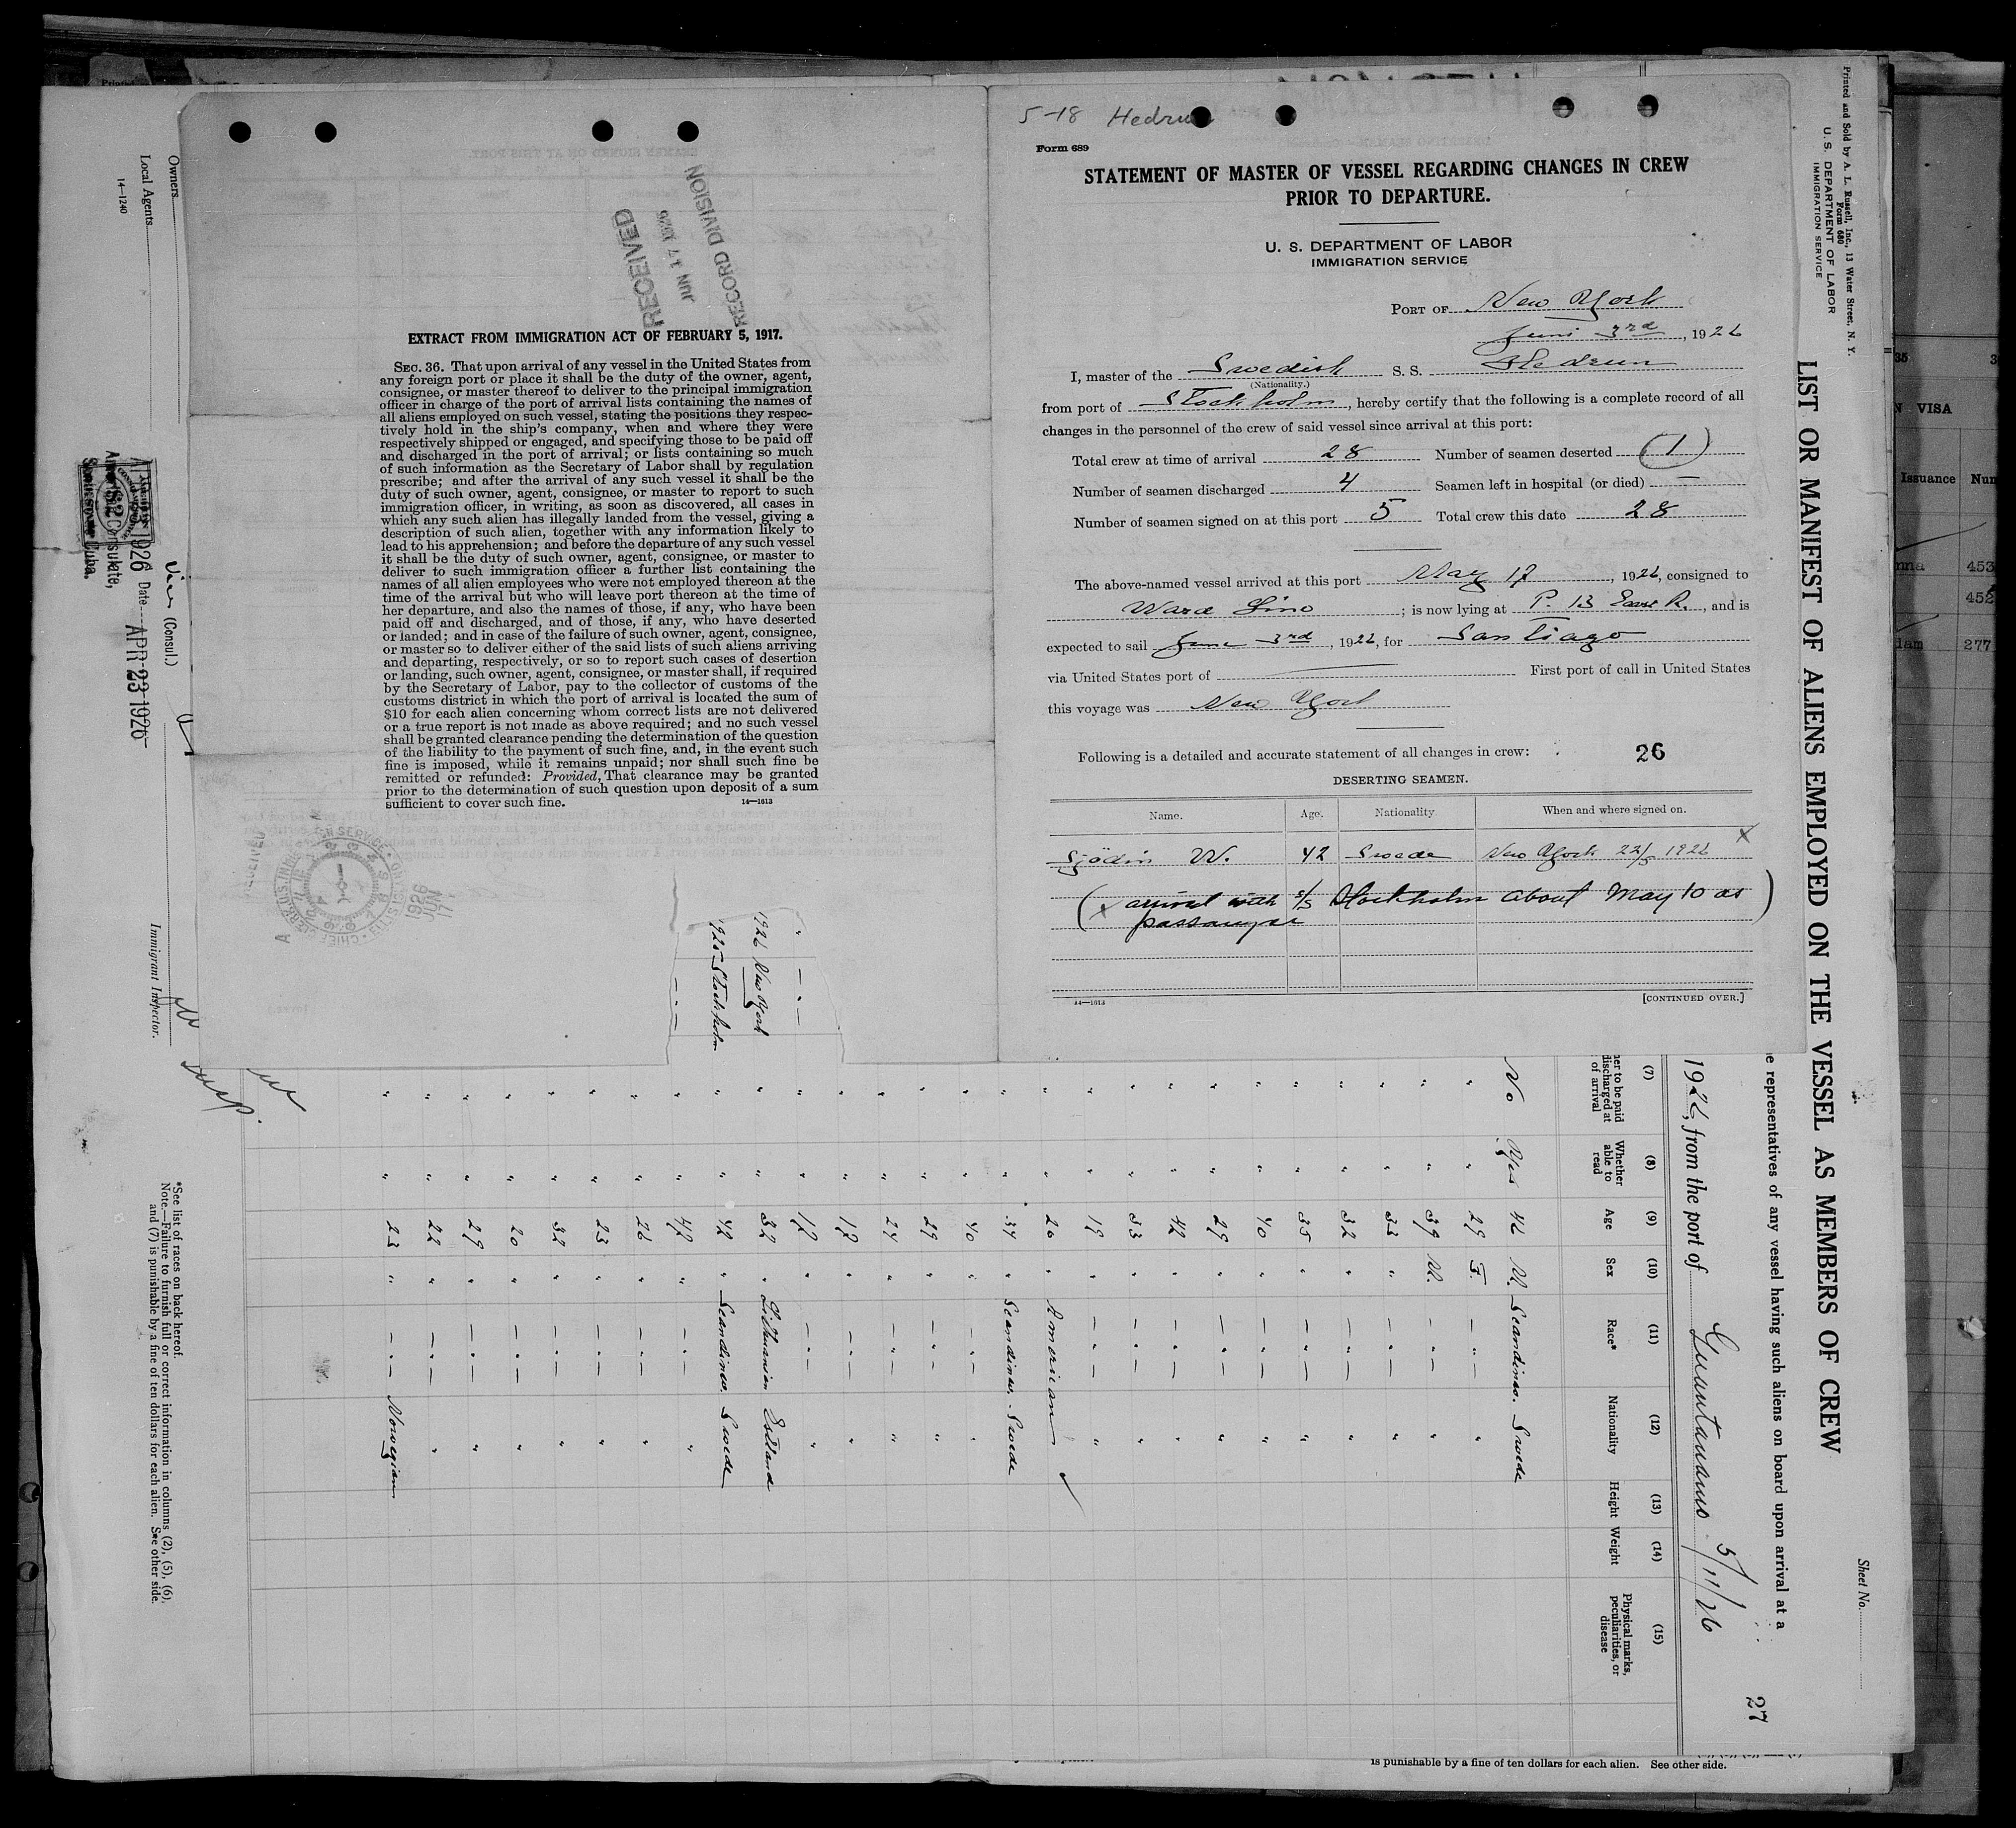 5-18 Hedrun
Form 689
STATEMENT OF MASTER OF VESSEL REGARDING CHANGES IN CREW
PRIOR TO DEPARTURE.
U. S. DEPARTMENT OF LABOR
IMMIGRATION SERVICE
PORT OF New York
Juni 3rd, 1926
I, master of the Swedish S. S. Hedrun
(Nationality.)
from port of Stockholm, hereby certify that the following is a complete record of all
changes in the personnel of the crew of said vessel since arrival at this port:
Total crew at time of arrival 28 Number of seamen deserted (1)
Number of seamen discharged 4 Seamen left in hospital (or died) —
Number of seamen signed on at this port 5 Total crew this date 28
The above-named vessel arrived at this port May 17, 1926, consigned to
Ward Line; is now lying at P. 13 East R., and is
expected to sail June 3rd, 1926, for Santiago
via United States port of — First port of call in United States
this voyage was New York
Following is a detailed and accurate statement of all changes in crew: 26
DESERTING SEAMEN.
Name. Age. Nationality When and where signed on.
Sjödin W. 42 Swede New York 22/5 1926 x
(x arrived with s/s Stockholm about May 10 as
passanger)
14—1613 [CONTINUED OVER.]
RECEIVED
JUN 17 1926
RECORD DIVISION
EXTRACT FROM IMMIGRATION ACT OF FEBRUARY 5, 1917.
SEC. 36. That upon arrival of any vessel in the United States from
any foreign port or place it shall be the duty of the owner, agent,
consignee, or master thereof to deliver to the principal immigration
officer in charge of the port of arrival lists containing the names of
all aliens employed on such vessel, stating the positions they respec-
tively hold in the ship's company, when and where they were
respectively shipped or engaged, and specifying those to be paid off
and discharged in the port of arrival; or lists containing so much
of such information as the Secretary of Labor shall by regulation
prescribe; and after the arrival of any such vessel it shall be the
duty of such owner, agent, consignee, or master to report to such
immigration officer, in writing, as soon as discovered, all cases in
which any such alien has illegally landed from the vessel, giving a
description of such alien, together with any information likely to
lead to his apprehension; and before the departure of any such vessel
it shall be the duty of such owner, agent, consignee, or master to
deliver to such immigration officer a further list containing the
names of all alien employees who were not employed thereon at the
time of the arrival but who will leave port thereon at the time of
her departure, and also the names of those, if any, who have been
paid off and discharged, and of those, if any, who have deserted
or landed; and in case of the failure of such owner, agent, consignee,
or master so to deliver either of the said lists of such aliens arriving
and departing, respectively, or so to report such cases of desertion
or landing, such owner, agent, consignee, or master shall, if required
by the Secretary of Labor, pay to the collector of customs of the
customs district in which the port of arrival is located the sum of
$10 for each alien concerning whom correct lists are not delivered
or a true report is not made as above required; and no such vessel
shall be granted clearance pending the determination of the question
of the liability to the payment of such fine, and, in the event such
fine is imposed, while it remains unpaid; nor shall such fine be
remitted or refunded: Provided, That clearance may be granted
prior to the determination of such question upon deposit of a sum
sufficient to cover such fine.
14—1613
1926 JUN 17
Printed and Sold by A. L. Russell, Inc., 13 Water Street, N. Y.
Form 680
U. S. DEPARTMENT OF LABOR
IMMIGRATION SERVICE
Sheet No.
LIST OR MANIFEST OF ALIENS EMPLOYED ON THE VESSEL AS MEMBERS OF CREW
representatives of any vessel having such aliens on board upon arrival at a
27
1926, from the port of Guantanamo 5/11/26
(7) (8) (9) (10) (11) (12) (13) (14) (15)
to be paid discharged at of arrival
Whether able to read
Age
Sex
Race*
Nationality
Height
Weight
Physical marks, peculiarities, or disease
No Yes 42 M. Scandinav. Swede
" " 29 F. — " — "
" " 39 M. — " — "
" " 33 " — " — "
" " 32 " — " — "
" " 35 " — " — "
" " 40 " — " — "
" " 29 " — " — "
" " 42 " — " — "
" " 33 " — " — "
" " 19 " — " — "
" " 20 " American ✓
" " 34 " Scandinav. Swede
" " 40 " — " — "
" " 29 " — " — "
" " 24 " — " — "
" " 17 " — " — "
" " 17 " — " — "
1926 New York " " 32 " Lithuanian Estland
1925 Stockholm " " 42 " Scandinav. Swede
— " — " " 42 " — " — "
" " 26 " — " — "
" " 23 " — " — "
" " 32 " — " — "
" " 20 " — " — "
" " 29 " — " — "
" " 22 " — " — "
" " 23 " — " — Norwegian
Owners
Local Agents
14—1240
(Consul.)
Date APR 23 1926
Immigrant Inspector.
*See list of races on back hereof.
Note.—Failure to furnish full or correct information in columns (2), (5), (6),
and (7) is punishable by a fine of ten dollars for each alien. See other side.
is punishable by a fine of ten dollars for each alien. See other side.
VISA
Issuance
453
452
277